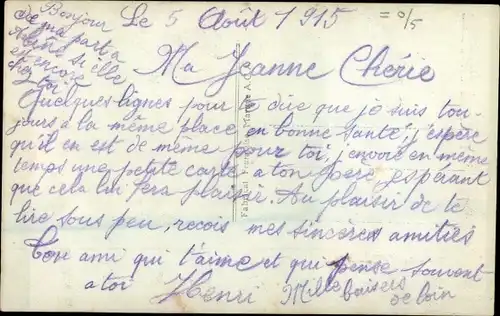 Bonjour
de ma part à
Aline si elle
est encore
chez toi
Le 5 Août 1915
Ma Jeanne Chérie
Quelques lignes pour te dire que je suis tou-
jours a la même place en bonne santé j'espère
qu'il en est de même pour toi, j'envoie en même
temps une petite carte a ton père, espérant
que cela lui fera plaisir. Au plaisir de te
lire sous peu, recois mes sincères amitiés
Ton ami qui t'aime et qui pense souvent
a toi Henri Mille baisers
de loin